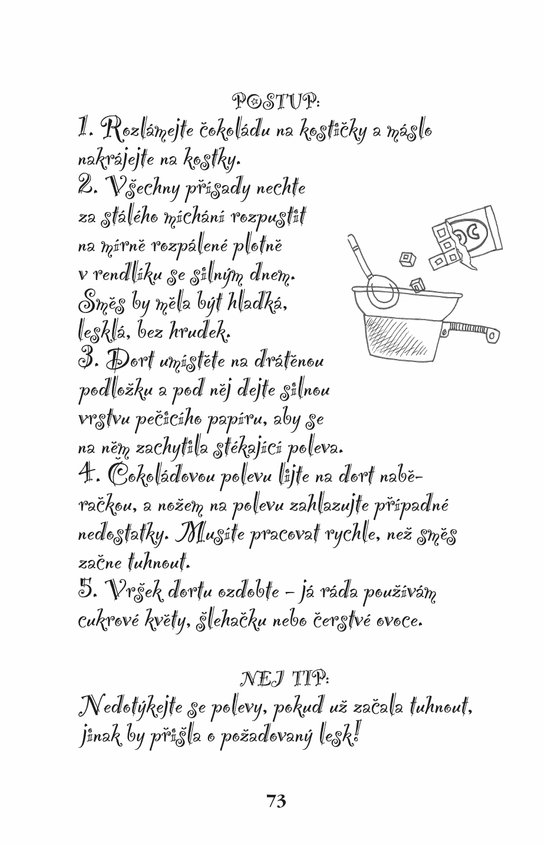 POSTUP:
1. Rozlámejte čokoládu na kostičky a máslo
nakrájejte na kostky.
2. Všechny přísady nechte
za stálého míchání rozpustit
na mírně rozpálené plotně
v rendlíku se silným dnem.
Směs by měla být hladká,
lesklá, bez hrudek.
3. Dort umístěte na drátěnou
podložku a pod něj dejte silnou
vrstvu pečicího papíru, aby se
na něm zachytila stékající poleva.
4. Čokoládovou polevu lijte na dort nabě-
račkou, a nožem na polevu zahlazujte případné
nedostatky. Musíte pracovat rychle, než směs
začne tuhnout.
5. Vršek dortu ozdobte – já ráda používám
cukrové květy, šlehačku nebo čerstvé ovoce.
NEJ TIP:
Nedotýkejte se polevy, pokud už začala tuhnout,
jinak by přišla o požadovaný lesk!
73